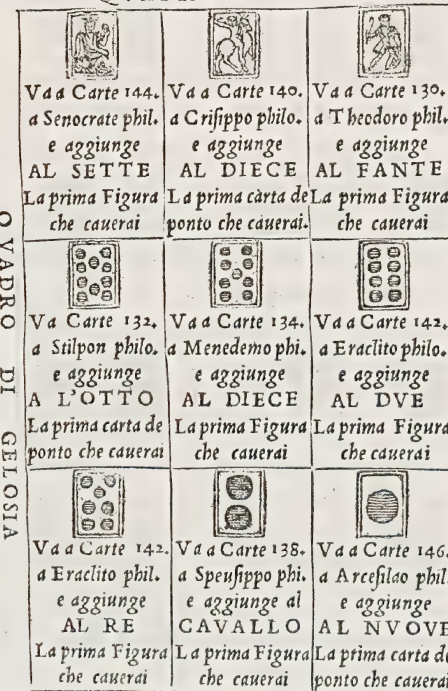 Va a Carte 144.
a Senocrate phil.
e aggiunge
AL SETTE
La prima Figura
che cauerai
Va a Carte 140.
a Criſippo philo.
e aggiunge
AL DIECE
La prima càrta de
ponto che cauerai.
Va a Carte 130.
a Theodoro phil.
e aggiunge
AL FANTE
La prima Figura
che cauerai
Va a Carte 132.
a Stilpon philo.
e aggiunge
A L'OTTO
La prima carta de
ponto che cauerai
Va a Carte 134.
a Menedemo phi.
e aggiunge
AL DIECE
La prima Figura
che cauerai
Va a Carte 142.
a Eraclito philo.
e aggiunge
AL DVE
La prima Figura
che cauerai
Va a Carte 142.
a Eraclito phil.
e aggiunge
AL RE
La prima Figura
che cauerai
Va a Carte 138.
a Speuſippo phi.
e aggiunge al
CAVALLO
La prima Figura
che cauerai
Va a Carte 146.
a Arceſilao phil.
e aggiunge
AL NVOVE
La prima carta de
ponto che cauerai
QVADRO DI GELOSIA